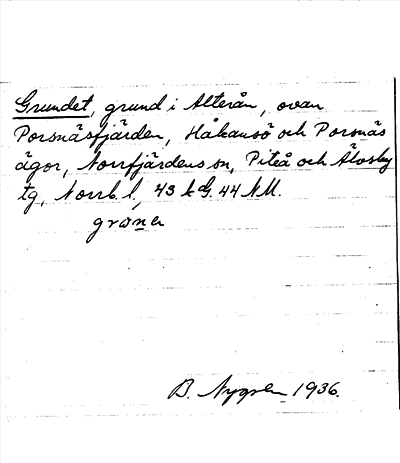 Grundet, grund i Alterån, ovan
Porsnäsfjärden, Håkansö och Porsnäs
ägor, Norrfjärdens sn, Piteå och Älvsby
tg, Norrb. l., 43 k G. 44 NU.
B. Nygren 1936.